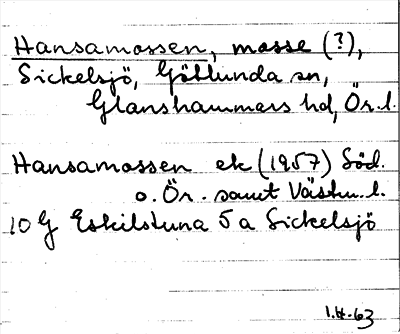 Hansamossen, mosse (?),
Sickelsjö, Götlunda sn,
Glanshammars hd, Ör. l.
Hansamossen ek (1957) Söd.
o. Ör. samt Västm. l.
10 G Eskilstuna 5 a Sickelsjö
1.4.63